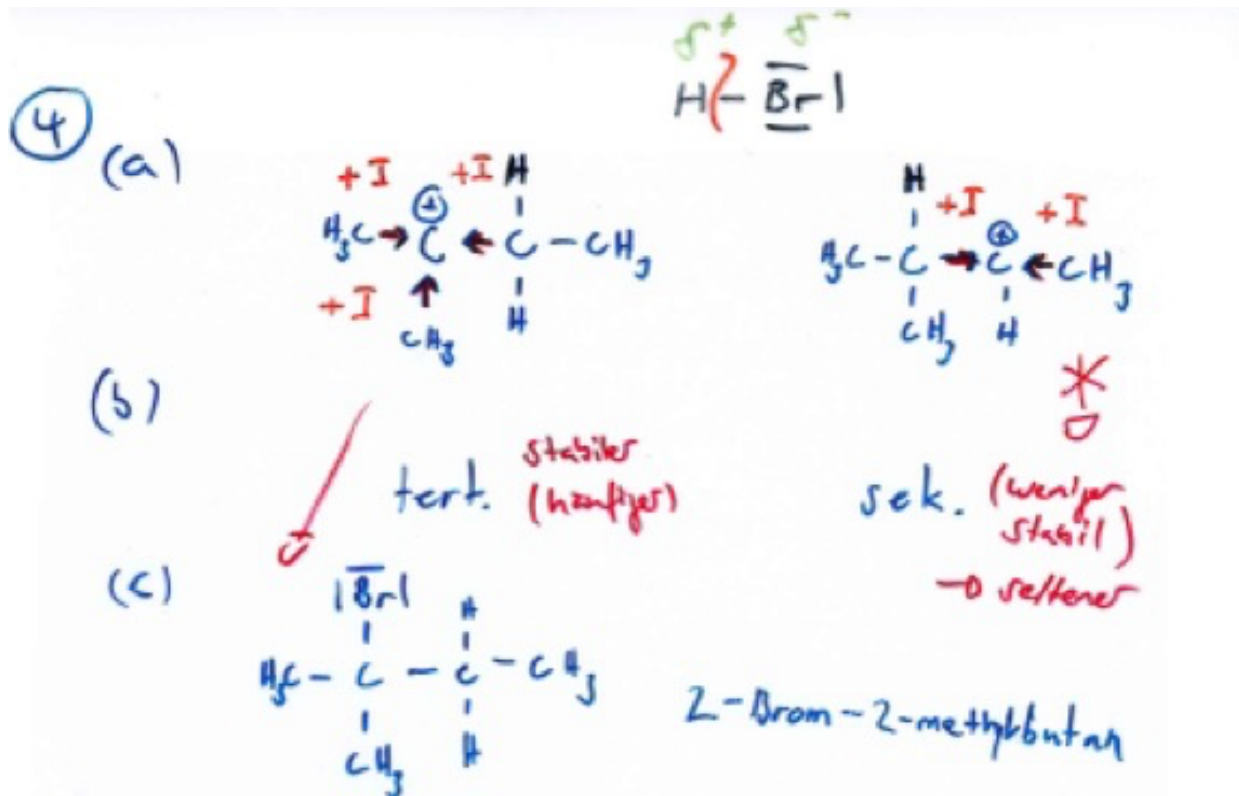 δ+ δ-
H-Br
4
(a)
+I +I H
H3C→C←C-CH3
⊕
+I
CH3 H
H
+I +I
H3C-C→C←CH3
⊕
CH3 H
(b)
tert. stabiler
(häufiger)
sek. (weniger
stabil)
→ seltener
(c)
|Br| H
H3C-C-C-CH3
CH3 H
2-Brom-2-methylbutan